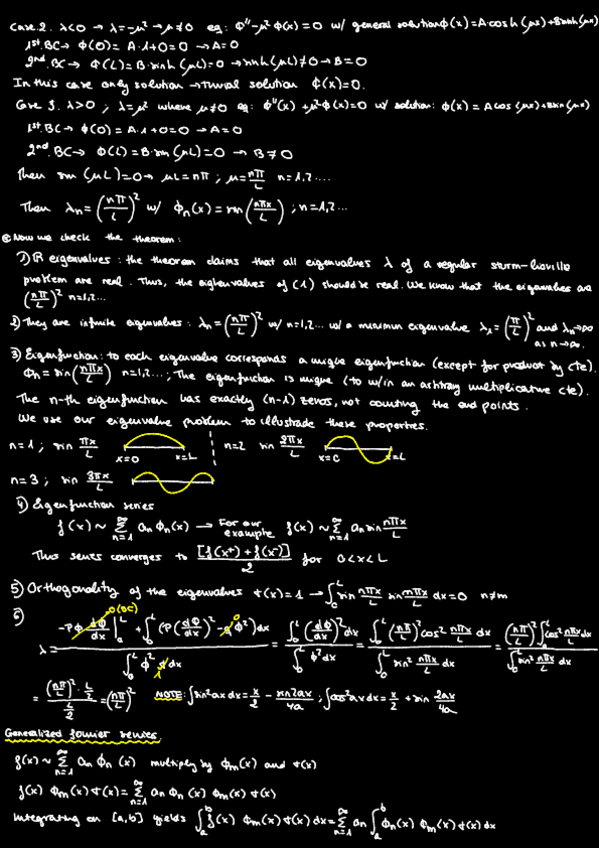 Case 2. λ<0 → λ=-μ² → μ≠0 eq: Φ''-μ²Φ(x)=0 w/ general solution Φ(x)=A·cosh(μx)+Bsinh(μx)
1st. BC→ Φ(0)= A·1+0=0 → A=0
2nd. BC → Φ(L)= B·sinh(μL)=0 → sinh(μL)≠0→B=0
In this case only solution → trivial solution Φ(x)=0.
Case 3. λ>0 ; λ=μ² where μ≠0 eq: Φ''(x)+μ²Φ(x)=0 w/ solution: Φ(x)=Acos(μx)+Bsin(μx)
1st. BC→ Φ(0)= A·1+0=0 → A=0
2nd BC→ Φ(L)=B·sin(μL)=0 → B≠0
Then sin(μL)=0→ μL=nπ ; μ=nπ/L n=1,2....
Then λn=(nπ/L)² w/ Φn(x)=sin(nπx/L) ; n=1,2...
Now we check the theorem:
1) ℝ eigenvalues: the theorem claims that all eigenvalues λ of a regular sturm-liouville
problem are real. Thus, the eigenvalues of (1) should be real. We know that the eigenvalues are
(nπ/L)² n=1,2...
2) They are infinite eigenvalues: λn=(nπ/L)² w/ n=1,2... w/ a minimum eigenvalue λ1=(π/L)² and λn→∞
as n→∞.
3) Eigenfunction: to each eigenvalue corresponds a unique eigenfunction (except for product by cte).
Φn=sin(nπx/L) n=1,2...; The eigenfunction is unique (to w/in an arbitrary multiplicative cte).
The n-th eigenfunction has exactly (n-1) zeros, not counting the end points.
We use our eigenvalue problem to illustrade these properties.
n=1 ; sin πx/L x=0 x=L n=2 sin 2πx/L x=0 x=L
n=3 ; sin 3πx/L
4) Eigenfunction series
f(x)~ ∞Σn=1 an Φn(x) → For our example f(x)~ ∞Σn=1 an sin nπx/L
This series converges to [f(x⁺)+f(x⁻)]/2 for 0<x<L
5) Orthogonality of the eigenvalues σ(x)=1 → ∫₀ᴸ sin nπx/L sin mπx/L dx=0 n≠m
6) λ= (-PΦ dΦ/dx |₀ᴸ 0(BC) + ∫₀ᴸ (P(dΦ/dx)² - qΦ²)dx) / ∫₀ᴸ Φ²σdx = ∫₀ᴸ(dΦ/dx)²dx / ∫₀ᴸ Φ²dx = ∫₀ᴸ (nπ/L)² cos² nπx/L dx / ∫₀ᴸ sin² nπx/L dx = (nπ/L)² ∫₀ᴸ cos² nπx/L dx / ∫₀ᴸ sin² nπx/L dx
= (nπ/L)²·L/2 / L/2 = (nπ/L)² NOTE: ∫sin²ax dx= x/2 - sin2ax/4a ; ∫cos²ax dx= x/2 + sin 2ax/4a
Generalized fourier series.
f(x)~ ∞Σn=1 an Φn (x) multiply by Φm(x) and σ(x)
f(x) Φm(x) σ(x)= ∞Σn=1 an Φn (x) Φm(x) σ(x)
integrating on [a,b] yields ∫ₐᵇ f(x) Φm(x) σ(x)dx= ∞Σn=1 an ∫ₐᵇ Φn(x) Φm(x) σ(x)dx